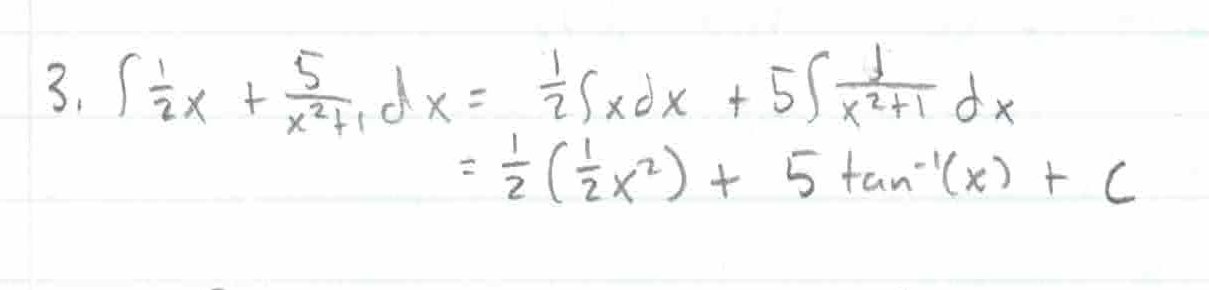 3. ∫ 1/2 x + 5/(x²+1) dx = 1/2 ∫ x dx + 5 ∫ 1/(x²+1) dx
= 1/2 (1/2 x²) + 5 tan⁻¹(x) + C